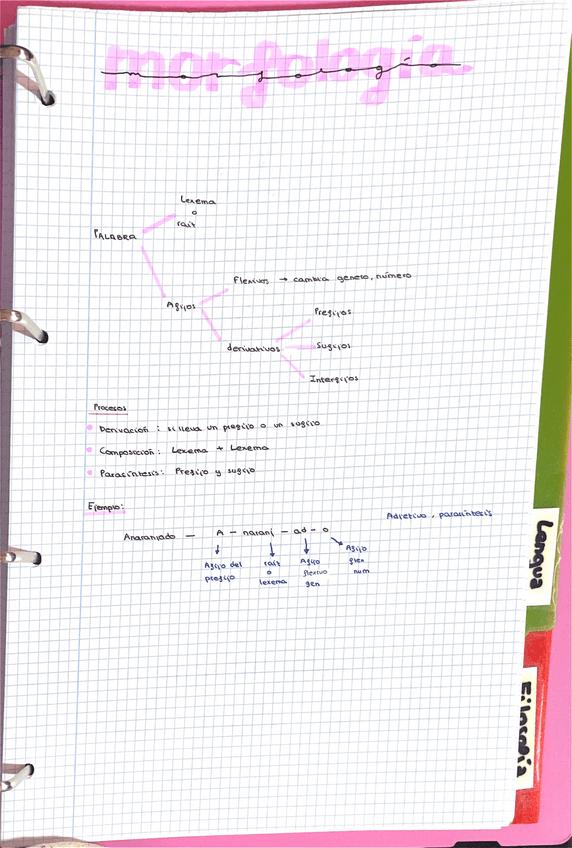 morfología
Lexema
o
raíz
PALABRA
Flexivos → cambia genero, número
Afijos
Prefijos
derivativos
Sufijos
Interfijos
Procesos
Derivación : si lleva un prefijo o un sufijo
Composición: Lexema + Lexema
Parasíntesis: Prefijo y sufijo
Ejemplo:
Adjetivo, parasíntesis
Anaranjado — A - naranj - ad - o
Afijo del
prefijo
raíz
o
lexema
Afijo
flexivo
gen
Afijo
num
Lengua
Filosofía